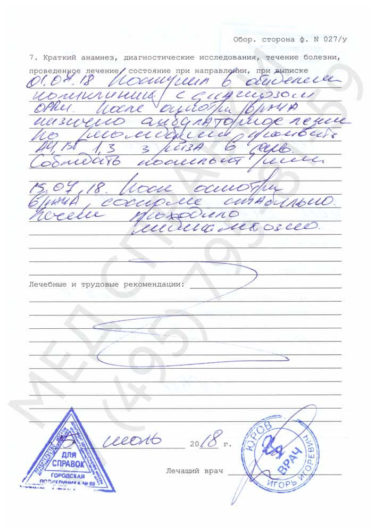 Обор. сторона ф. N 027/у
7. Краткий анамнез, диагностические исследования, течение болезни,
проведенное лечение, состояние при направлении, при выписке
01.07.18 Поступил в отделение
поликлиники с диагнозом
ОРВИ. После осмотра врача
назначено амбулаторное лечение
3 раза в день
Соблюдать постельный режим
15.07.18. После осмотра
врача, состояние стабильно
Лечение проходило
Лечебные и трудовые рекомендации:
июль 2018 г.
Лечащий врач
ДЛЯ
СПРАВОК
ГОРОДСКАЯ
ПОЛИКЛИНИКА
ЮРОВ
ВРАЧ
ИГОРЬ ИГОРЕВИЧ
МЕД СПРАВКИ
(495)